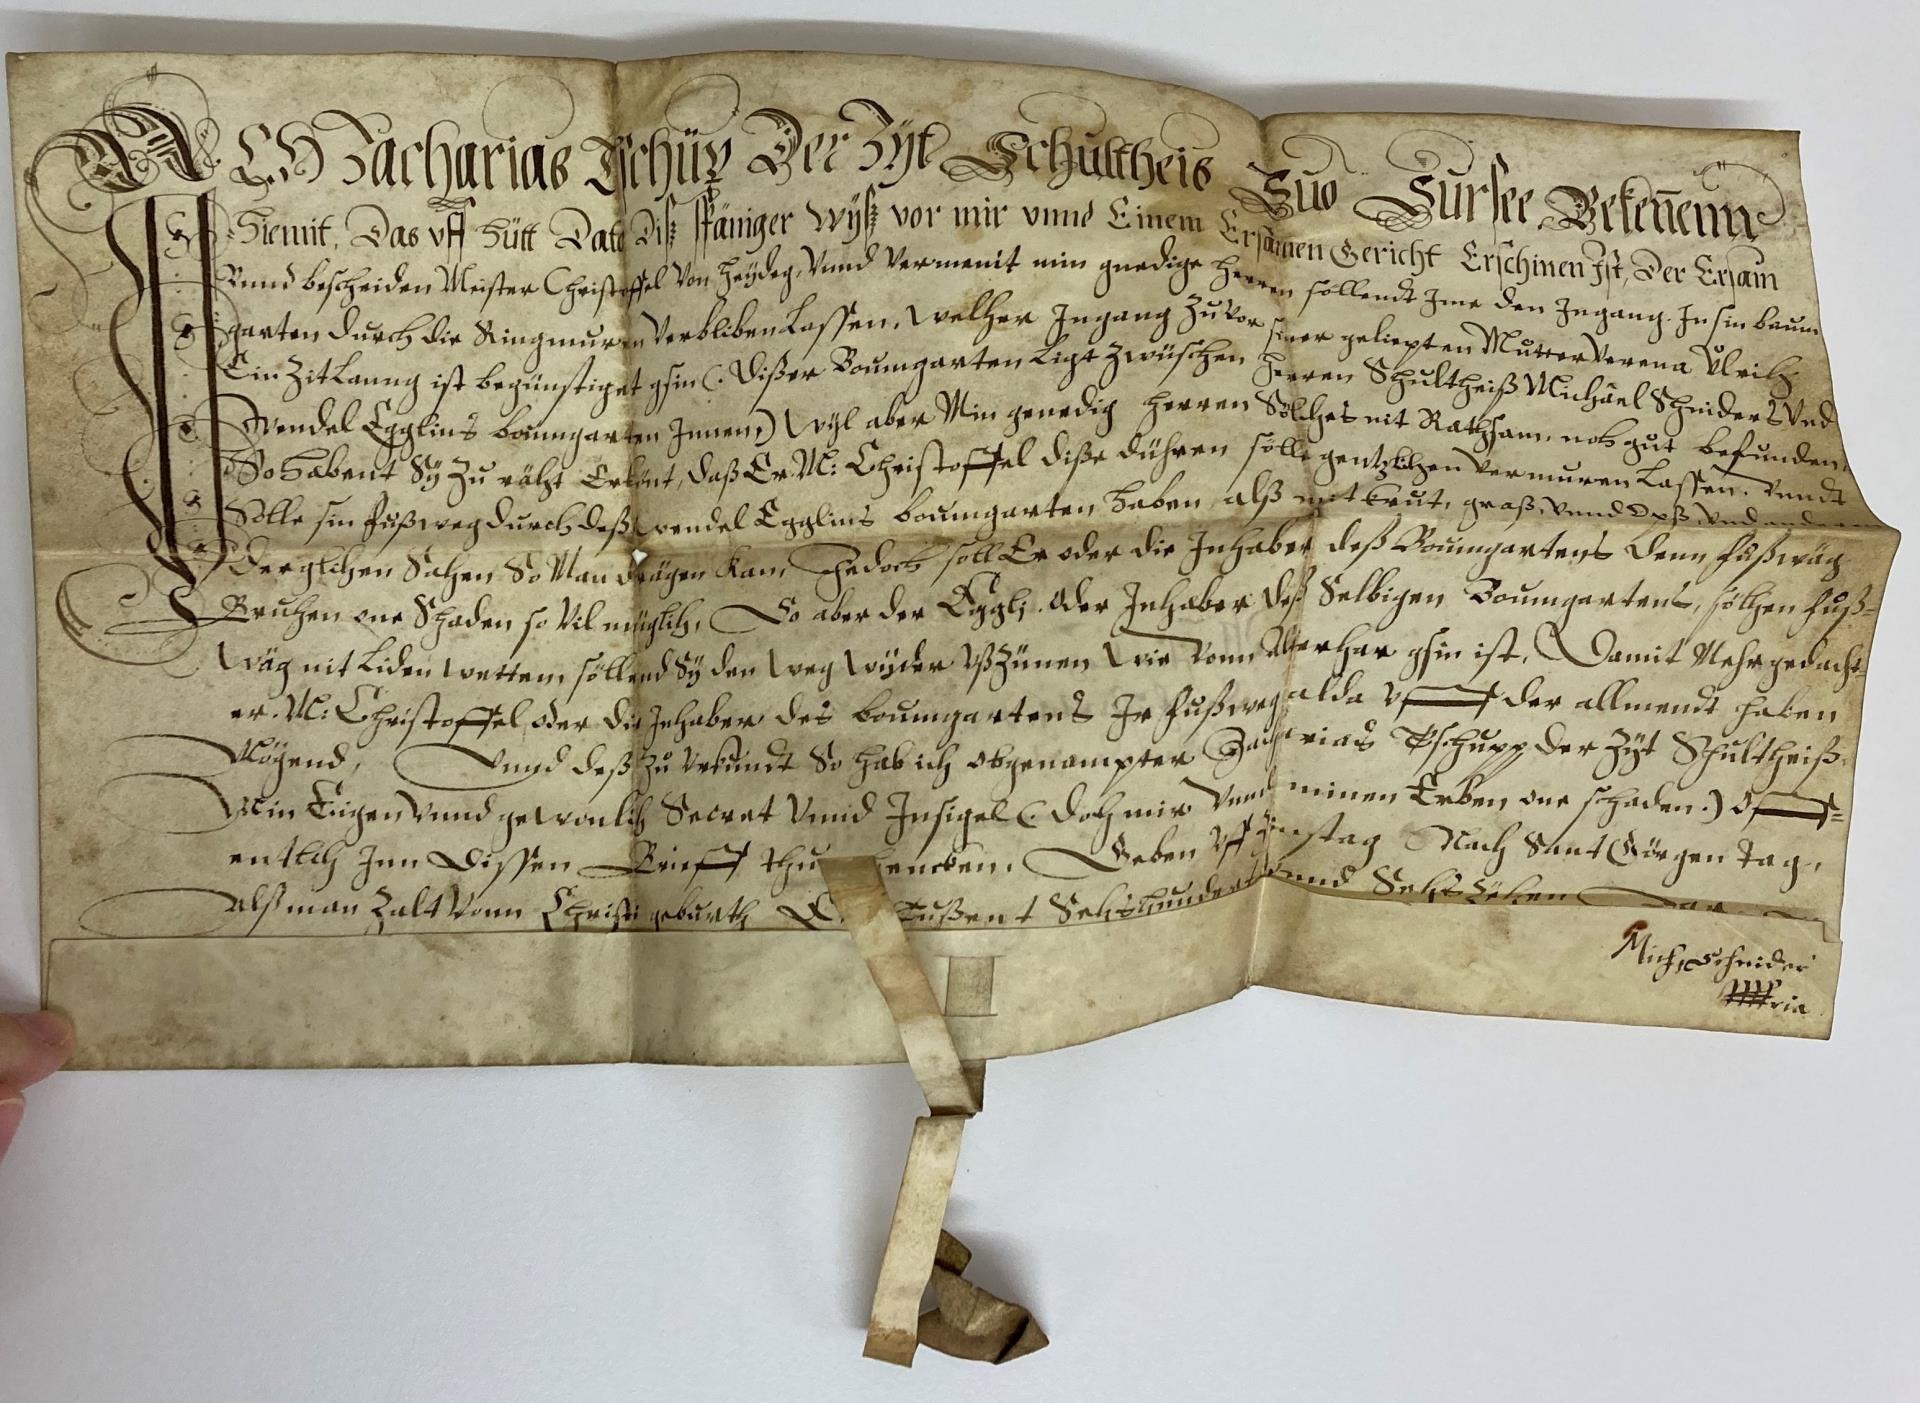 ICH Zacharias Tschüpp Der Zyt Schultheis Zuo Sursee Bekennenn
Hiemit, Das vff hütt Dato Diß späniger Wyß vor mir vnnd Einem Ersamen Gericht Erschinen Ist, Der Ersam
Vnnd bescheiden Meister Christoffel Von Heydeg, Vnnd Vermeint min gnedige Herren söllendt Ime den Ingang In sin baum
garten durch die Ringmuren Verbliben Lassen, Welher Ingang Zuvor siner geliepten Mutter Verena
Ein Zit Lanng ist begünstiget gsin (. Dißer Boumgarten Ligt Zwüschen Herren Schultheiß Michäel Schniders Vnd
Wendel Egglins boumgarten Innen,) Wyl aber Min genedig Herren Sölches nit Rathsam noh gut befunden,
So habent Sÿ Zu räht Erkönt, daß Er M: Christoffel diße dühren sölle gentzlihen Vermuren Lassen. Vnndt
Sölle sin fußweg durch deß Wendel Egglins boumgarten haben, alß mit krut, graß, Vnnd Vnd anderen
derglihen Sahen So Man drägen kan, Jedoch soll Er oder die Inhaber deß Boumgartens denn fußwäg
Bruhen one Schaden so Vil müglih, So aber der Eggli, Oder Inhaber deß Selbigen Boumgartens, sölhen fuß-
Wäg nit Liden Wetten, söllend Sÿ den Weg Wyder Vßzünen Wie Vonn Alterhar gsin ist, Damit Mehrgedacht-
er. M: Christoffel, oder die Inhaber des boumgartens Ir fußweg alda Vff der allmendt haben
Mögend, Vnnd deß Zu Vrkundt So hab ich obgenampter Zacharias Tschupp der Zyt Schultheiß,
Min Eigen Vnnd gewonlih Secret Vnnd Insigel (. doh mir Vnnd minen Erben one schaden.) Off-
entlih Inn Dissen Brieff thun hencken. Geben Vff Zinstag Nach Sant Görgen Tag,
Alß man Zalt Vonn Christi geburth Tußent Sehshundert Vnnd Sehszehen Jar
Mich, Schnider